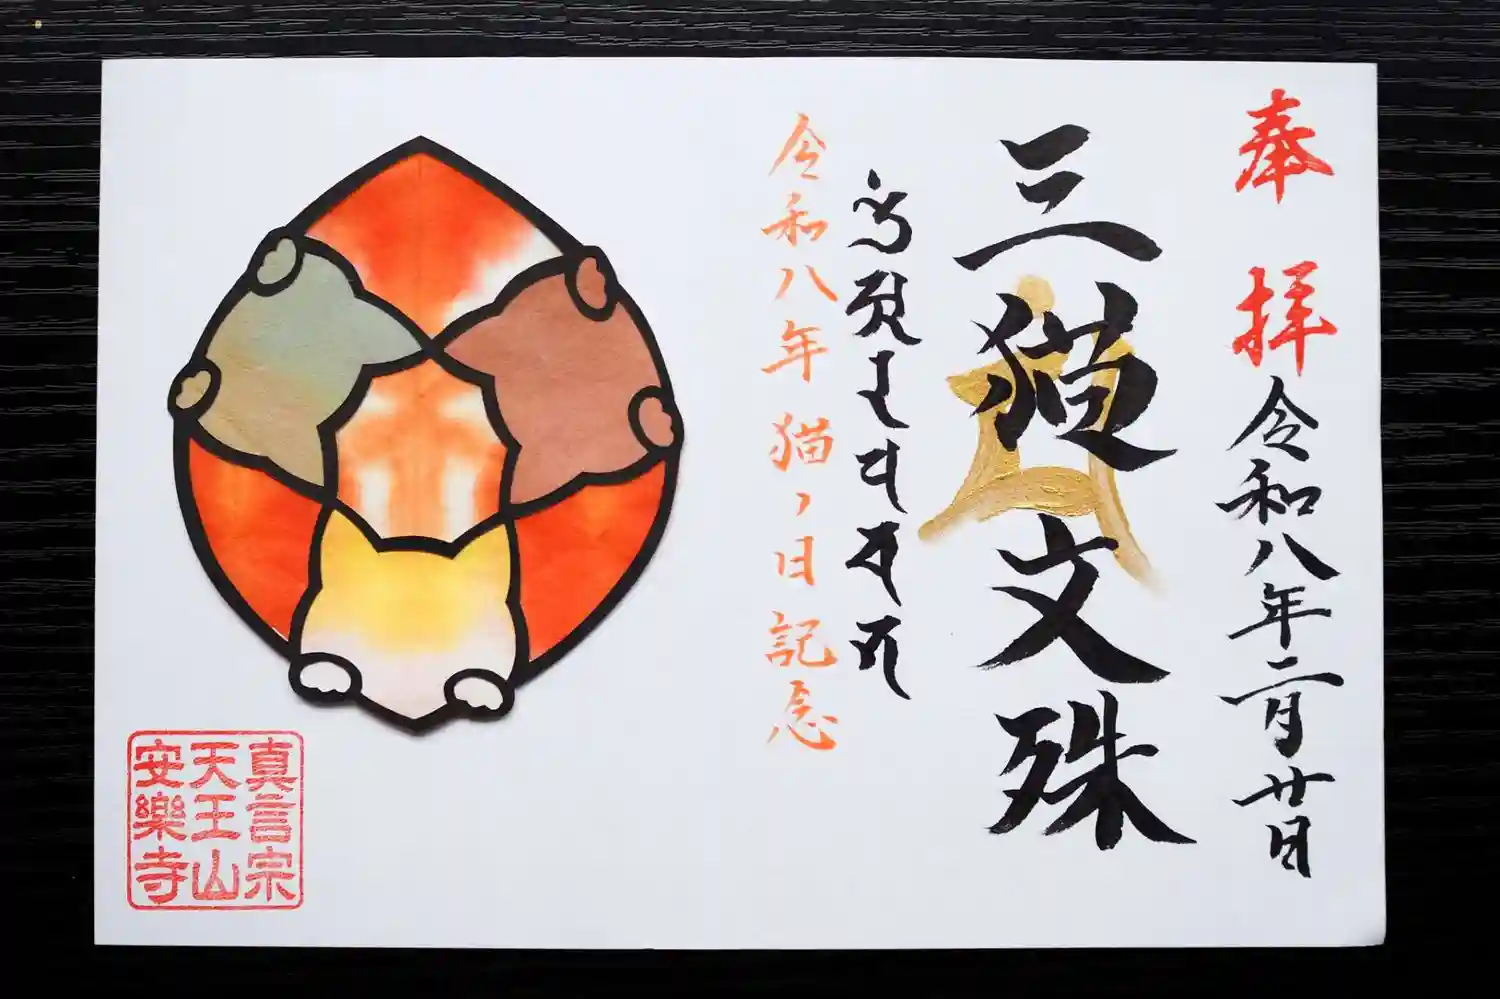 奉拝
令和八年二月廿日
三猫文殊
令和八年猫ノ日記念
真言宗
天王山
安樂寺